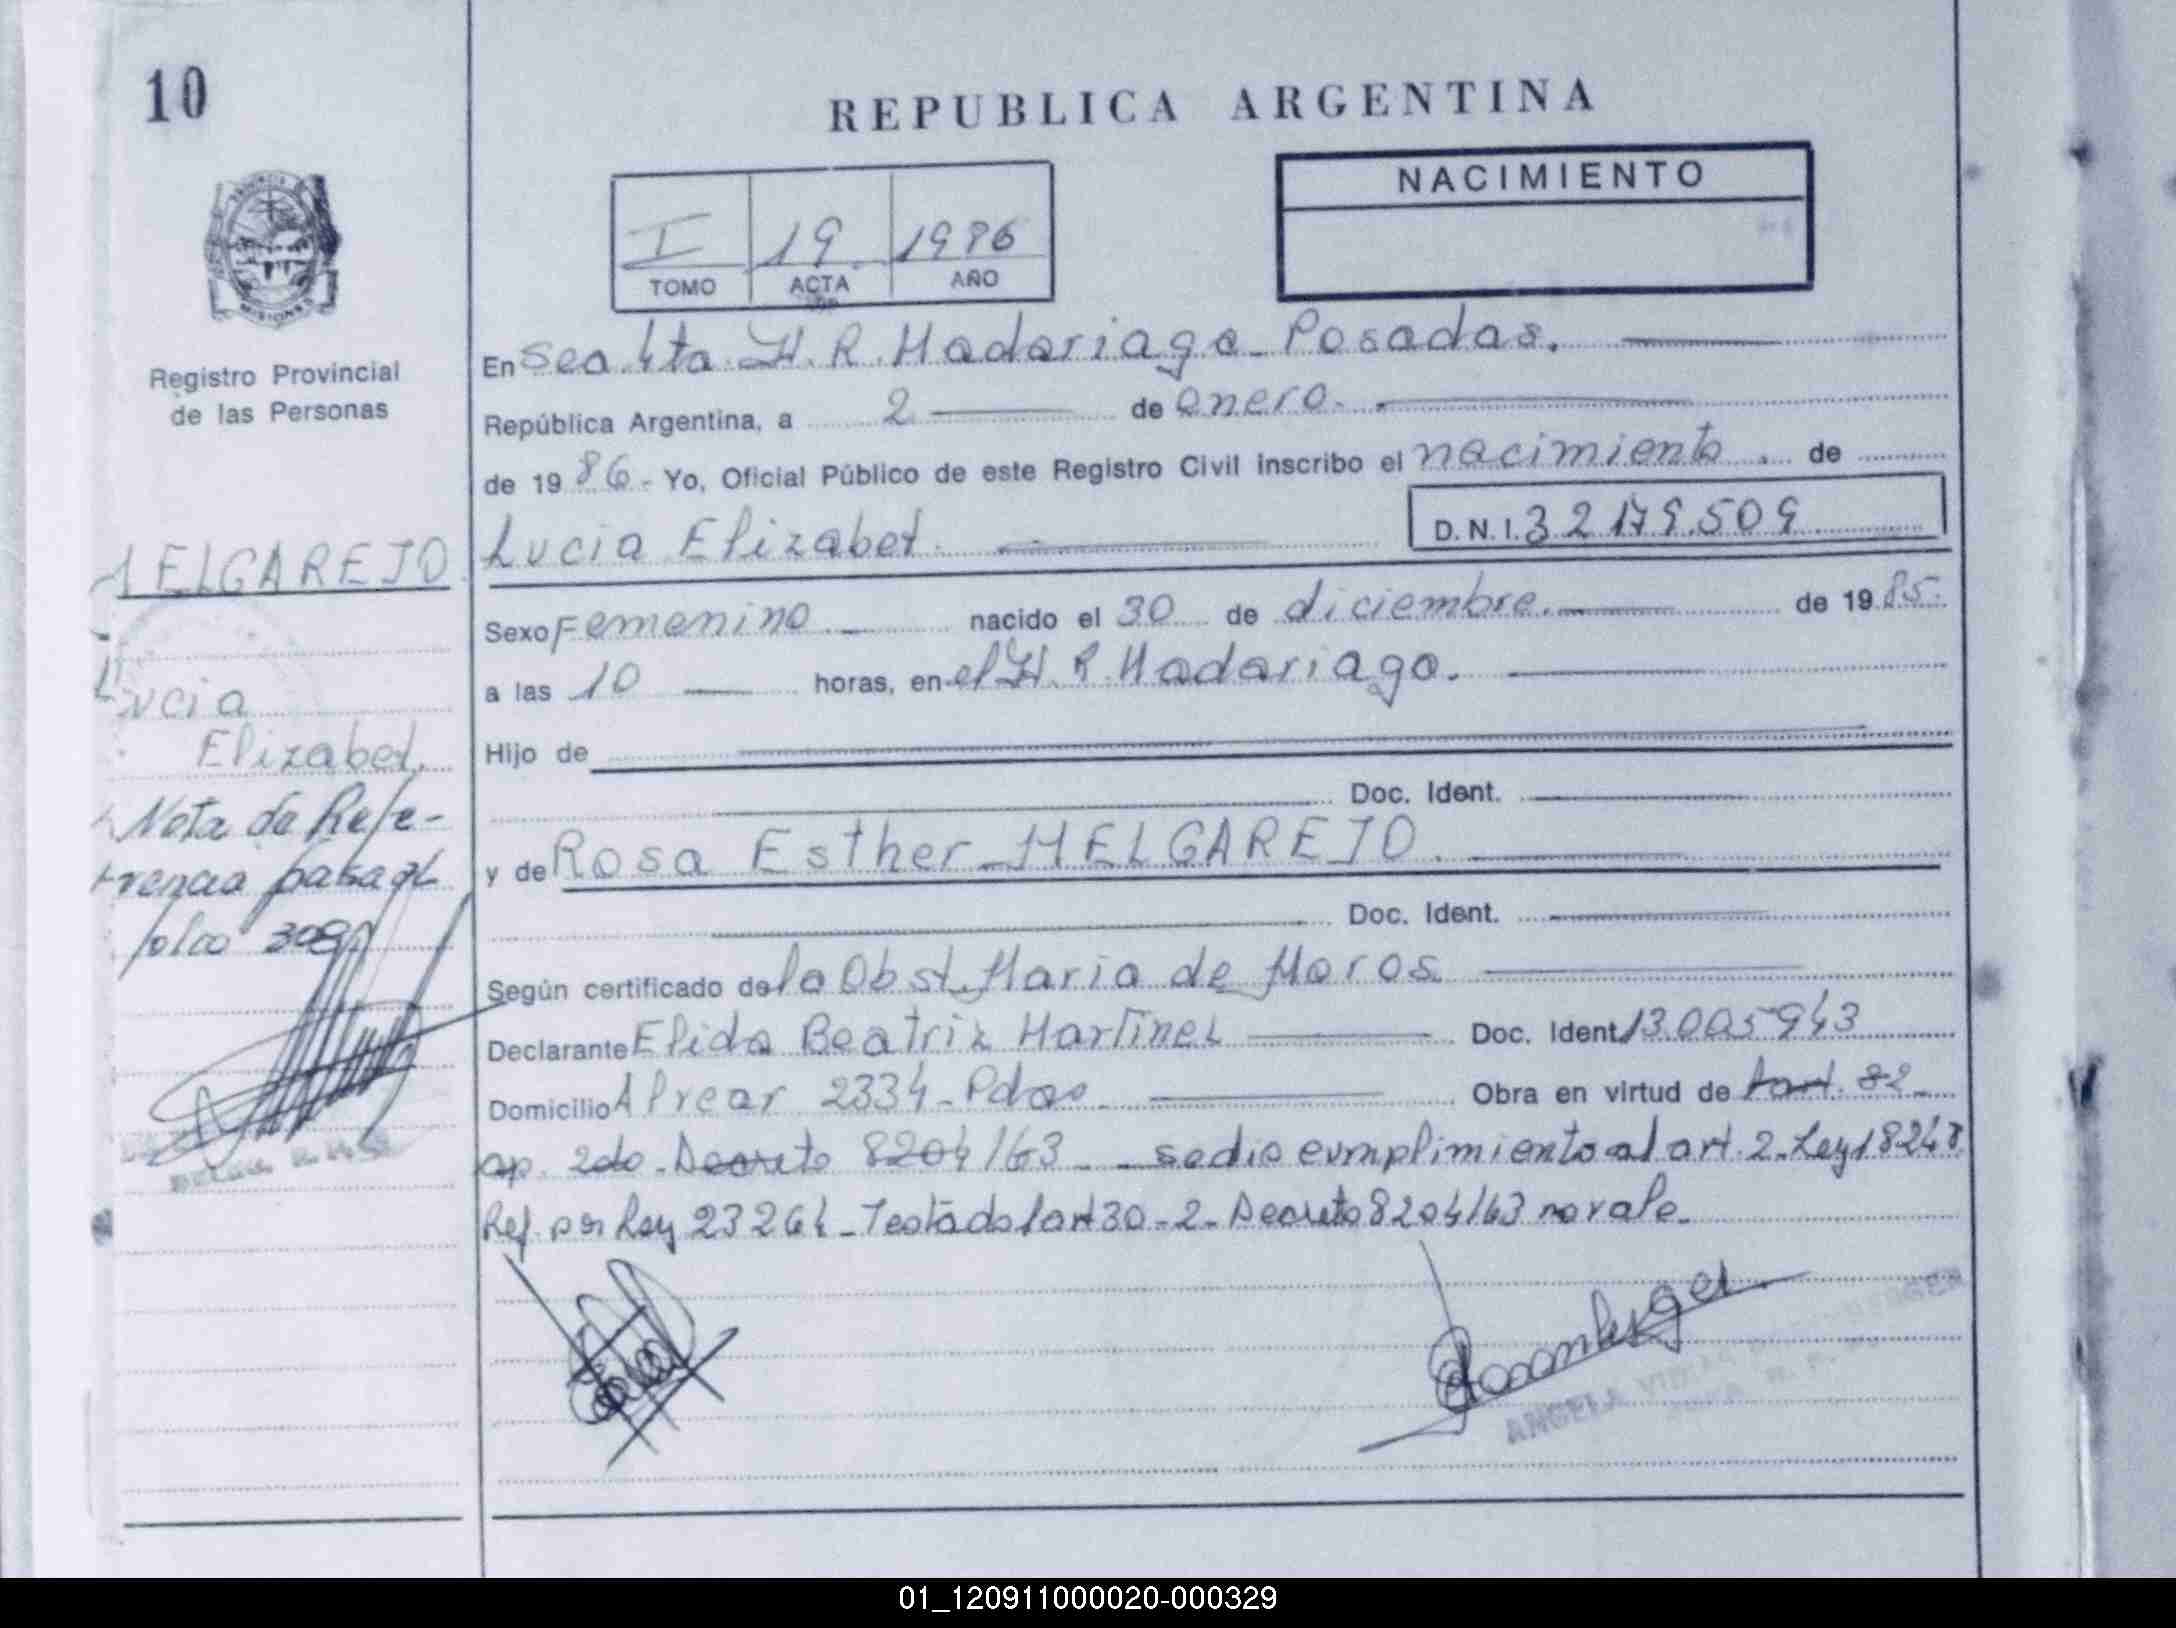 10
REPUBLICA ARGENTINA
NACIMIENTO
I 19 1986
TOMO ACTA AÑO
MISIONES
Registro Provincial
de las Personas
En Sec. 4ta. H. R. Madariaga - Posadas.
República Argentina, a 2 de enero.
de 1986.- Yo, Oficial Público de este Registro Civil inscribo el nacimiento. de
Lucia Elizabet. D.N.I. 32179.509
MELGAREJO.
Lucia
Elizabet.
Sexo Femenino nacido el 30 de diciembre. de 1985.
a las 10 horas, en el H. R. Madariaga.
Hijo de
Doc. Ident.
y de Rosa Esther MELGAREJO.
Doc. Ident.
Nota de Refe-
rencia pasa al
folio 308
Según certificado de la Obst. Maria de Moros
Declarante Elida Beatriz Martinez Doc. Ident. 13.005943
Domicilio Alvear 2334 - Pdas Obra en virtud de art. 82
ap. 2do. Decreto 8204/63 - se dio cumplimiento al art. 2 - Ley 18248
Ref. por Ley 23264 - Testado art 30 - 2 - Decreto 8204/63 no vale.
ANGELA
01_120911000020-000329